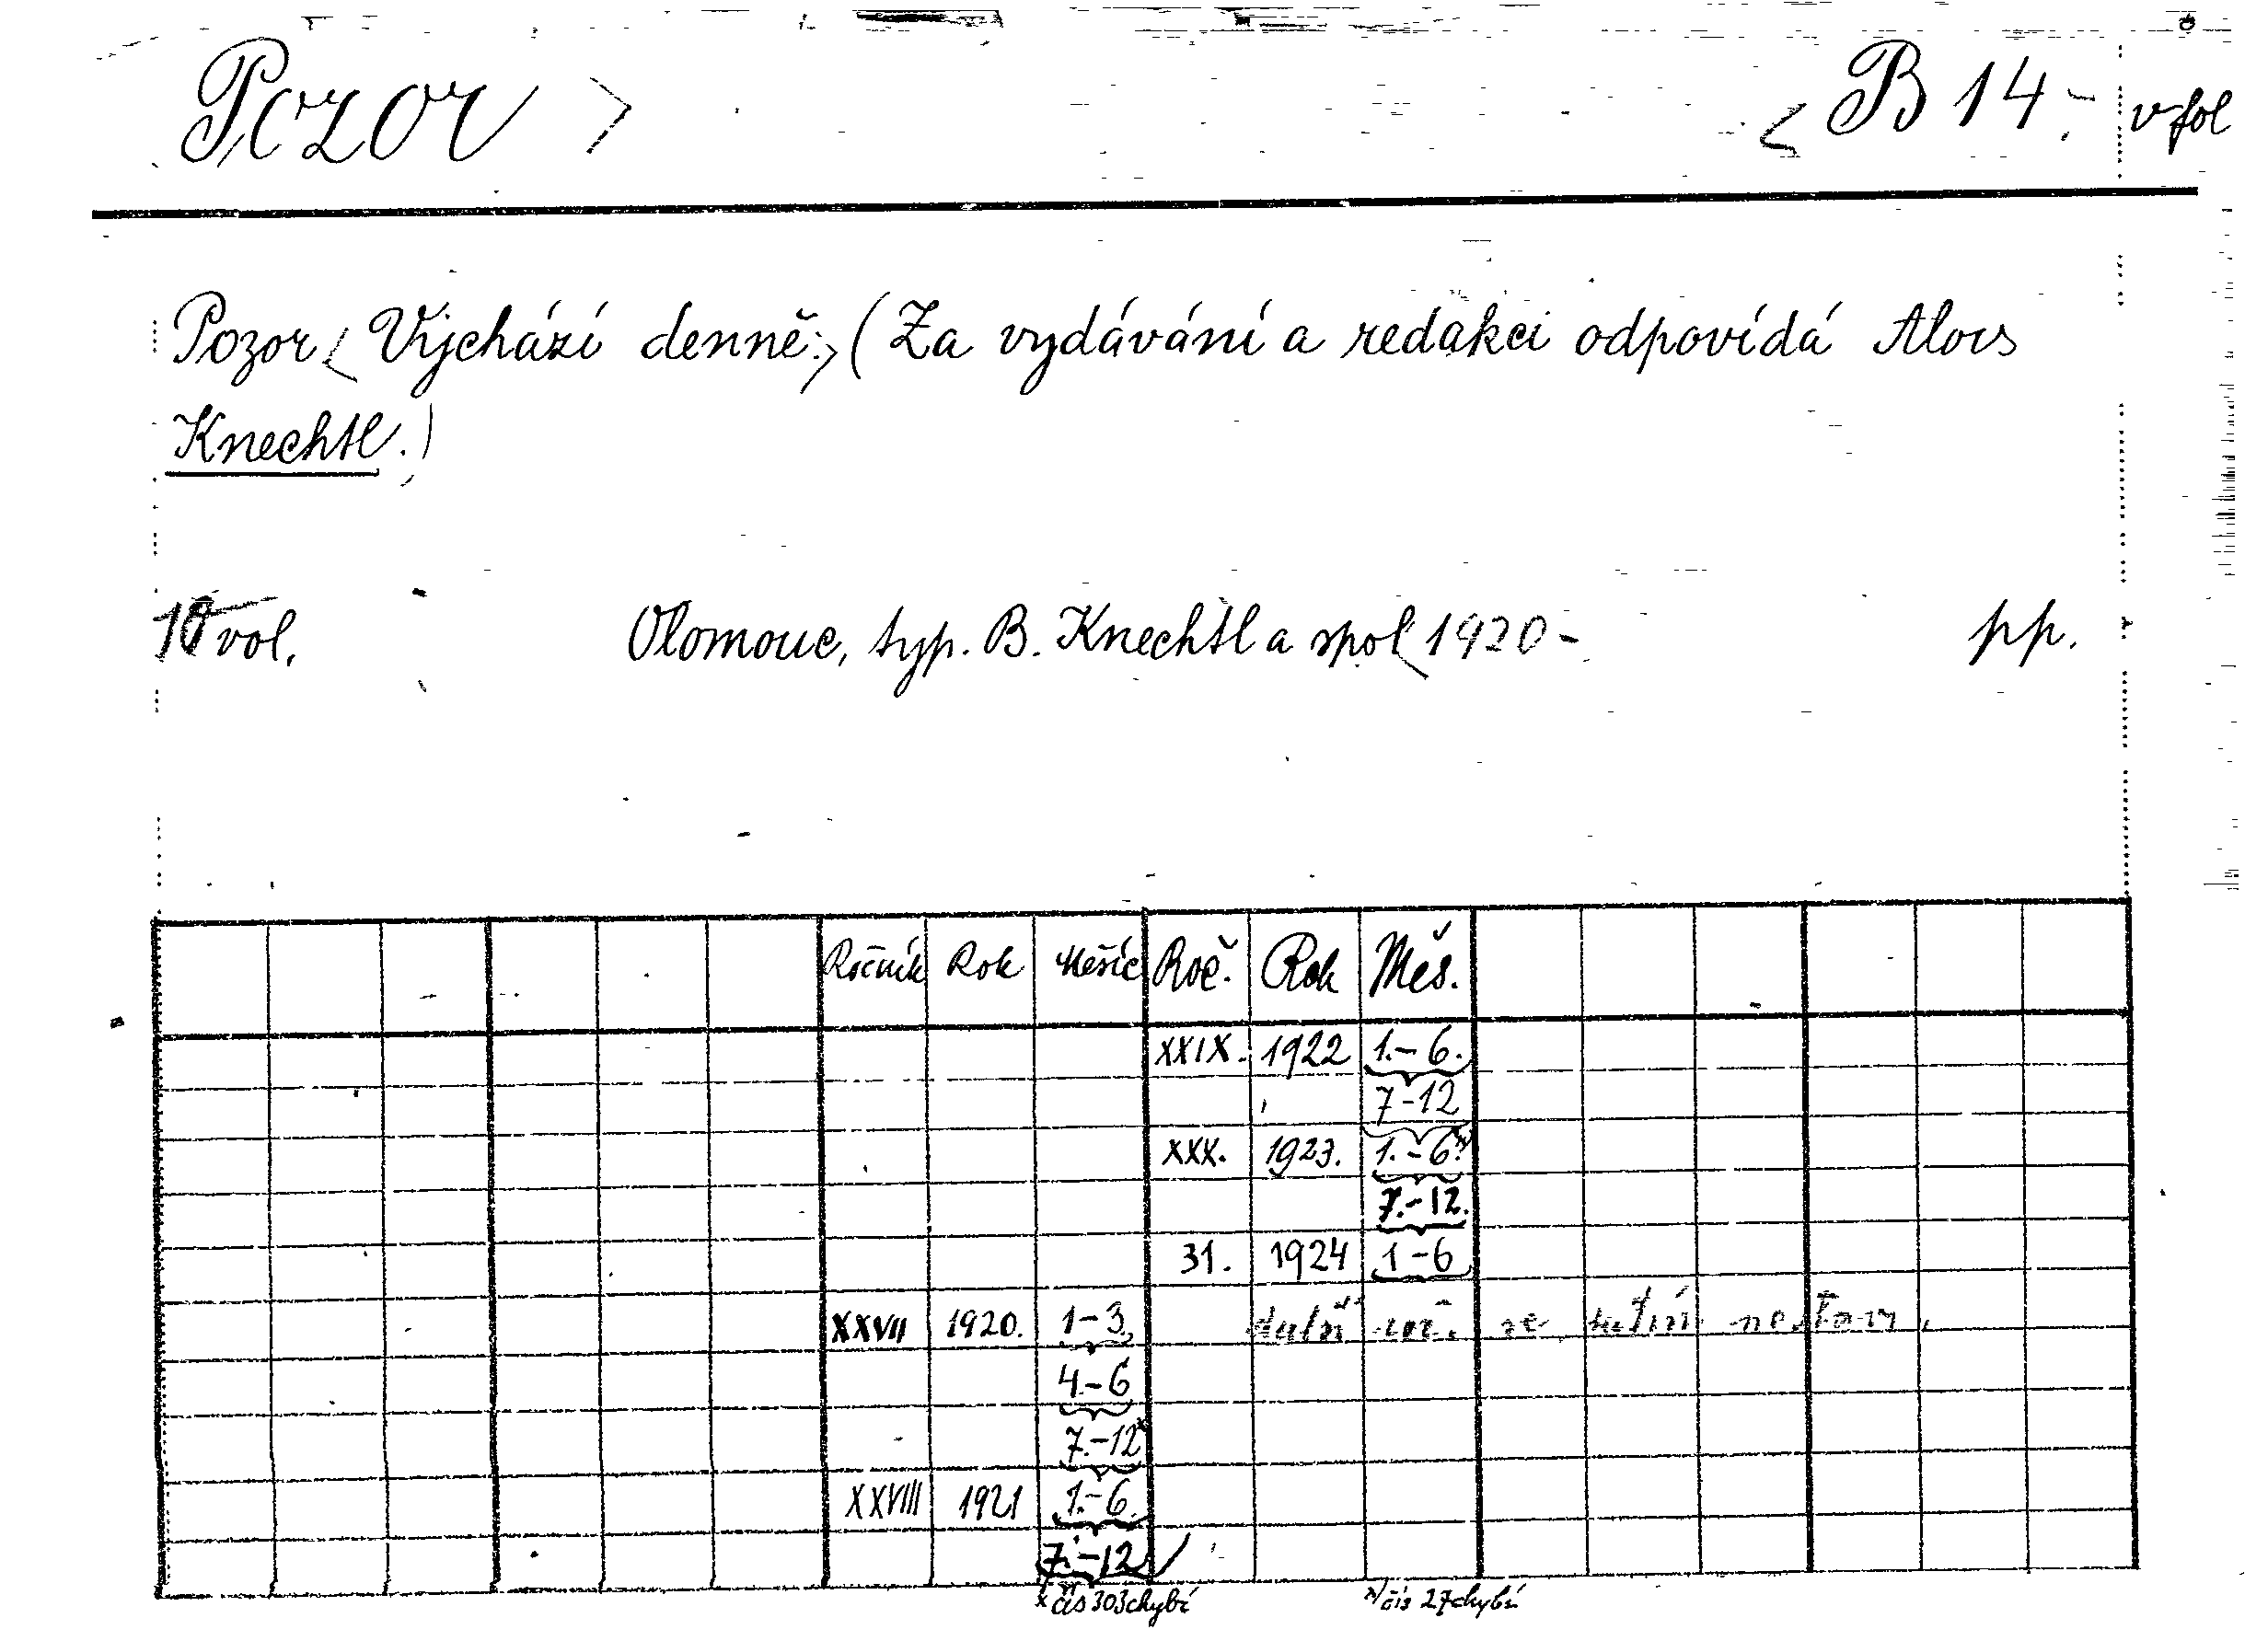 Pozor > < B 14.- v fol
Pozor < Vychází denně. > (Za vydávání a redakci odpovídá Alois
Knechtl.)
10 vol. Olomouc, typ. B. Knechtl a spol 1920- pp.
Ročník Rok Měsíc Roč. Rok Měs.
XXIX. 1922 1.-6.
7-12
XXX. 1923. 1.-6. x)
7.-12.
31. 1924 1-6
XXVII 1920. 1-3. další roč. se
4.-6
7.-12 x
XXVIII 1921 1.-6.
7.-12
x čís 303 chybí x) čís 27 chybí